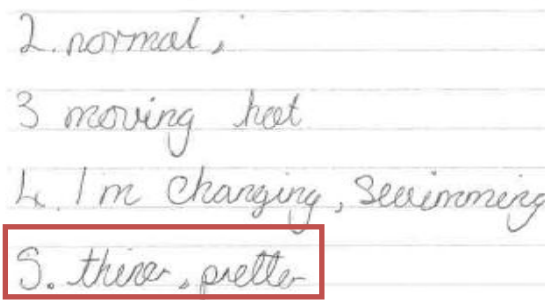 2. normal,
3 moving hot
4. I'm changing, swimming
5. thiner, pretter